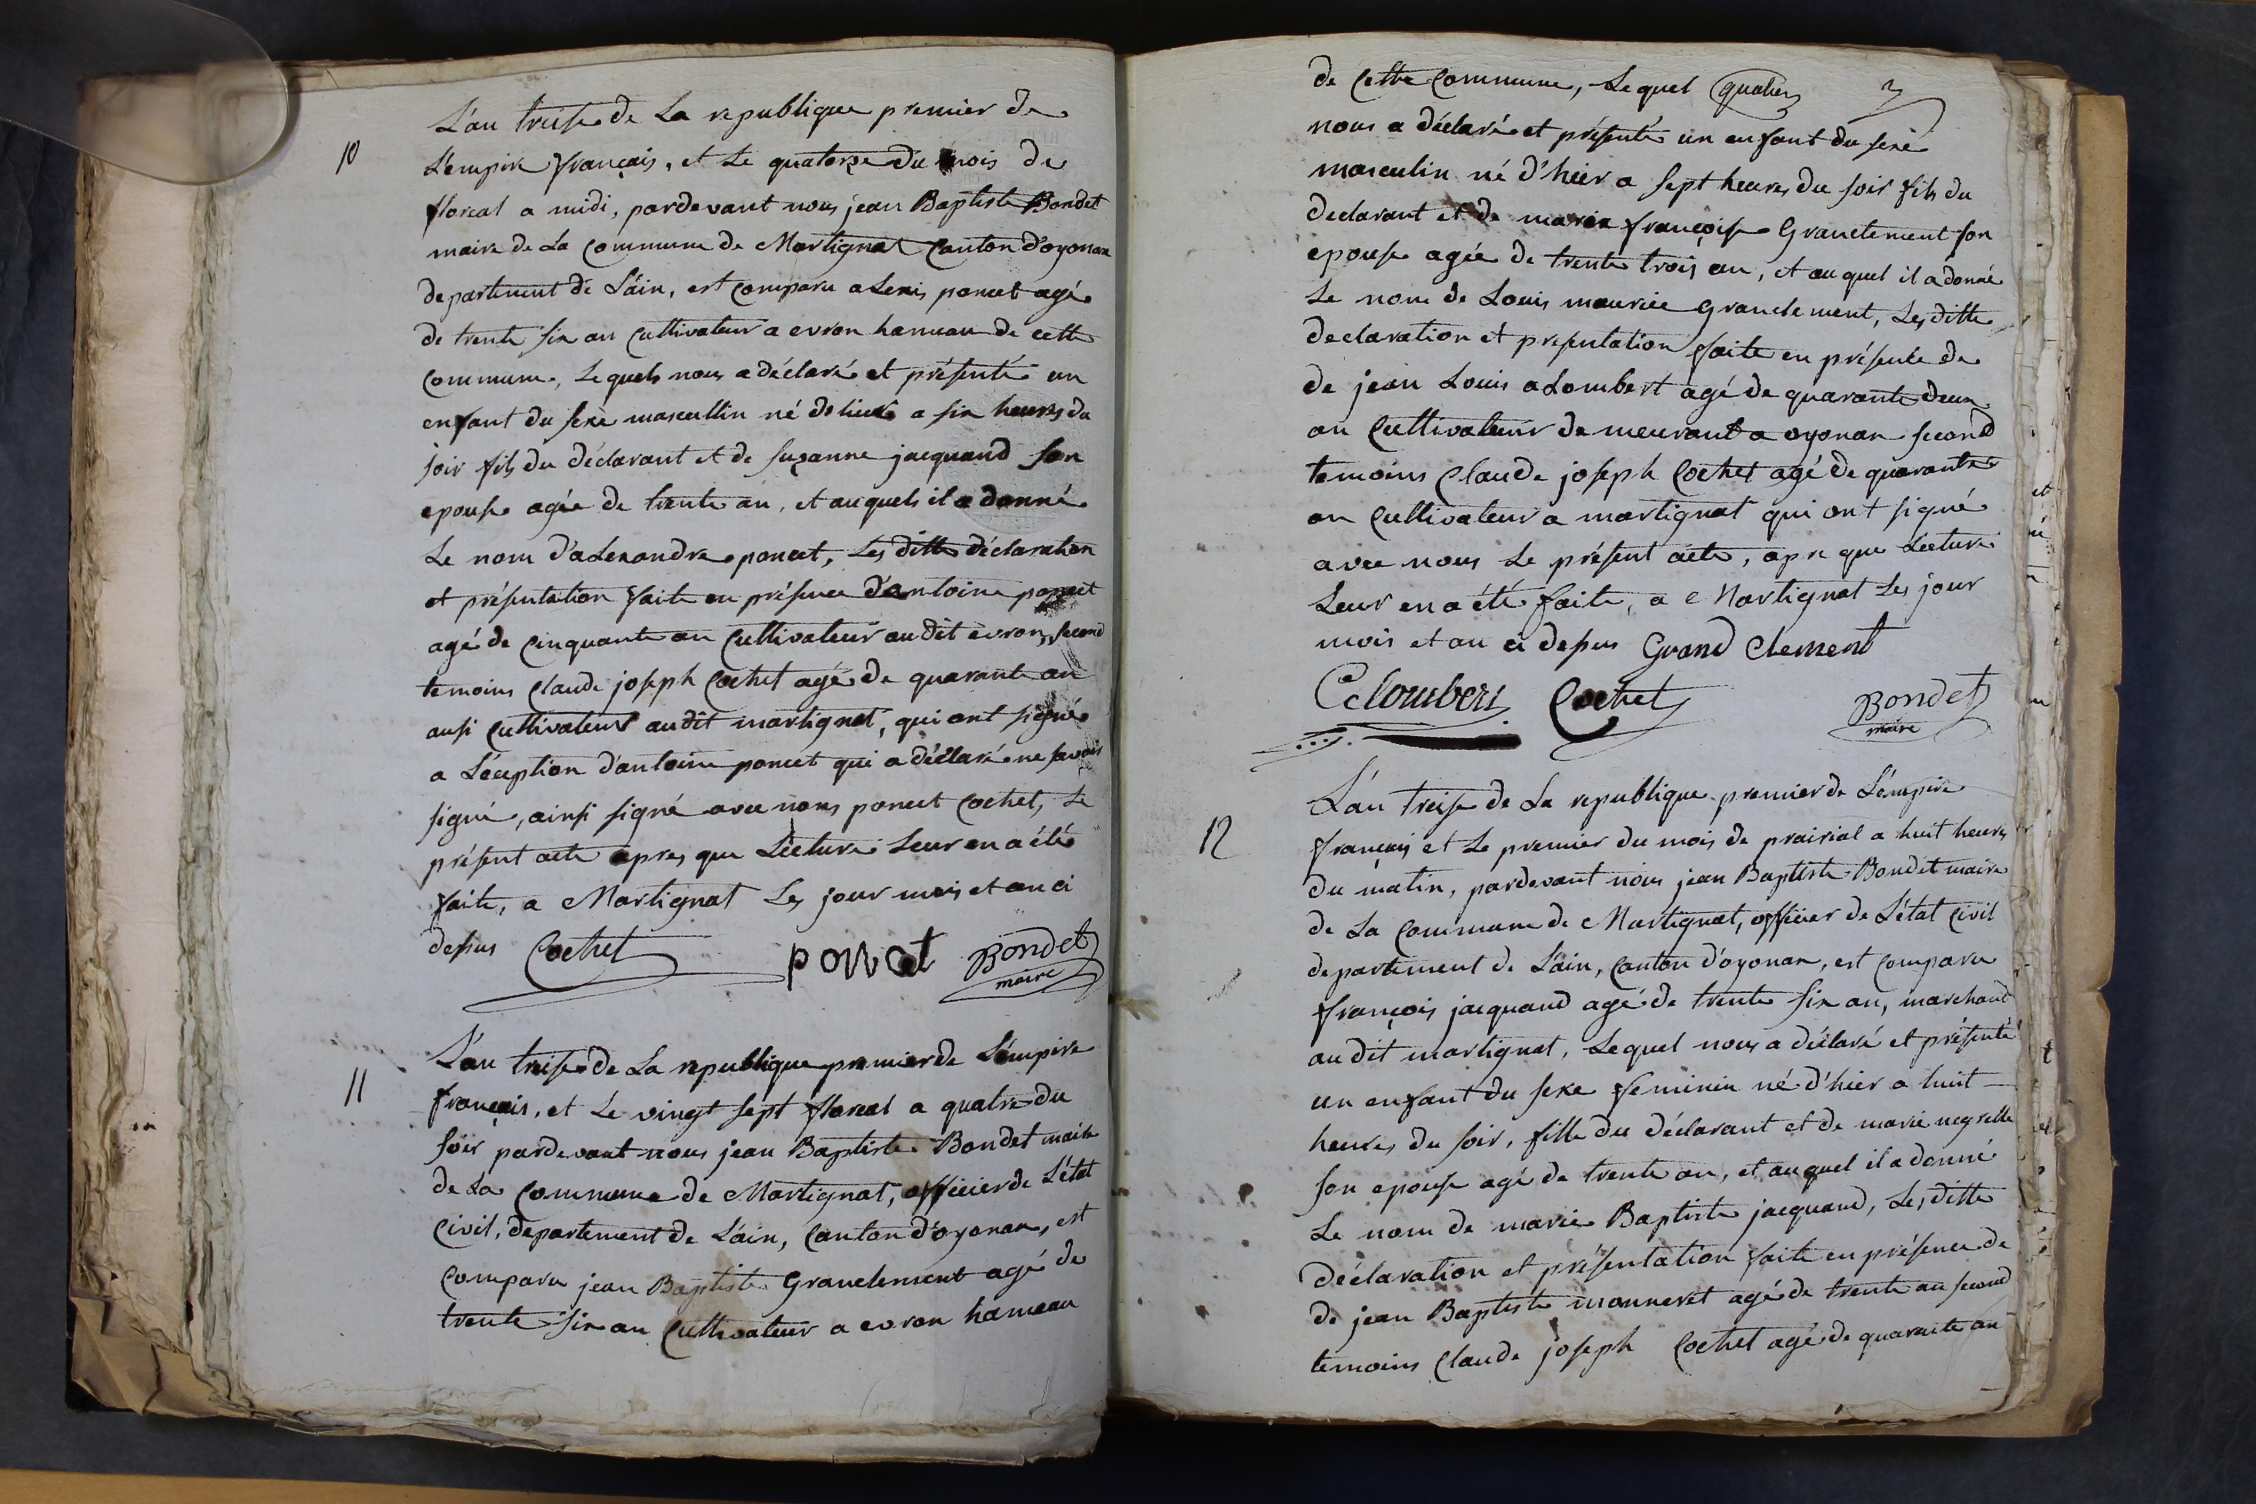 10
L'an treise de La republique premier de
L'empire français, et Le quatorze du mois de
floreal a midi, pardevant nous jean Baptiste Bondet
maire de La Commune de Martignat Canton d'oyonan
departement de L'ain, est comparu alexis poncet agé
de trente six an Cultivateur a evron hameau de cette
Commune, Lequels nous a déclaré et présenté un
enfant du sexe mascullin né de hieur a six heures du
soir fils du déclarant et de suzanne jacquand son
epouse agée de trente an, et auquels il a donné
Le nom d'alexandre poncet, Les ditte déclaration
et présentation faite en présence d'antoine poncet
agé de Cinquante an Cultivateur audit evron, second
temoins Claude joseph Cochet agé de quarante an
ausi Cultivateur audit martignat, qui ont signé
a L'éception d'antoine poncet qui a déclaré ne savoir
signé, ainsi signé avec nous poncet Cochet, Le
présent acte apres que Lecture Leur en a été
faite, a Martignat Les jour mois et an ci
desus Cochet poncet Bondet
maire
11
L'an treise de La republique premier de L'émpire
français, et Le vingt sept floreal a quatre du
soir pardevant nous jean Baptiste Bondet maire
de La Commune de Martignat, officier de L'état
Civil, departement de L'ain, Canton d'oyonan, est
Comparu jean Baptiste Granclement agé de
trente six an Cultivateur a evron hameau
de Cette Commune, Lequel
nous a déclaré et présenté un enfant du sexe
masculin né d'hier a sept heures du soir fils du
declarant et de marie françoise Granclement son
epouse agée de trente trois an, et auquel il a donné
Le nom de Louis maurice Granclement, Les ditte
declaration et présentation faite en présente de
de jean Louis aLombert agé de quarante deux
an Cultivateur demeurant a oyonan second
temoins Claude joseph Cochet agé de quarante
an Cultivateur a martignat qui ont signé
avec nous Le présent acte, apre que Lecture
Leur en a été faite, a Martignat Les jour
mois et an ci desus Grand Clement
Cochet Bondet
maire
12
L'an treise de La republique premier de L'émpire
français et Le premier du mois de prairial a huit heures
du matin, pardevant nous jean Baptiste Bondet maire
de La Commune de Martignat, officier de L'état Civil
departement de L'ain, Canton d'oyonan, est Comparu
françois jacquand agé de trente six an, marchand
audit martignat, Lequel nous a déclaré et présenté
un enfant du sexe feminin né d'hier a huit
heures du soir, fille du déclarant et de marie
son epouse agé de trente an, et auquel il a donné
Le nom de marie Baptiste jacquand, Les ditte
Déclaration et présentation faite en présence de
de jean Baptiste monneret agé de trente an second
temoins Claude joseph Cochet agé de quarante an